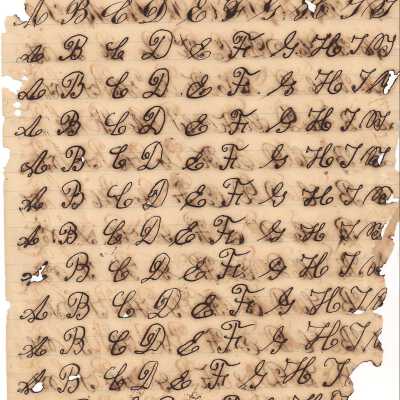 A B C D E F G H I J
A B C D E F G H I J
A B C D E F G H I
A B C D E F G H I J
A B C D E F G H I J
A B C D E F G H I
A B C D E F G H I
B C D E F G H I
A B C D E F G H I
A B C D E F G H I
A B C D E F G H I